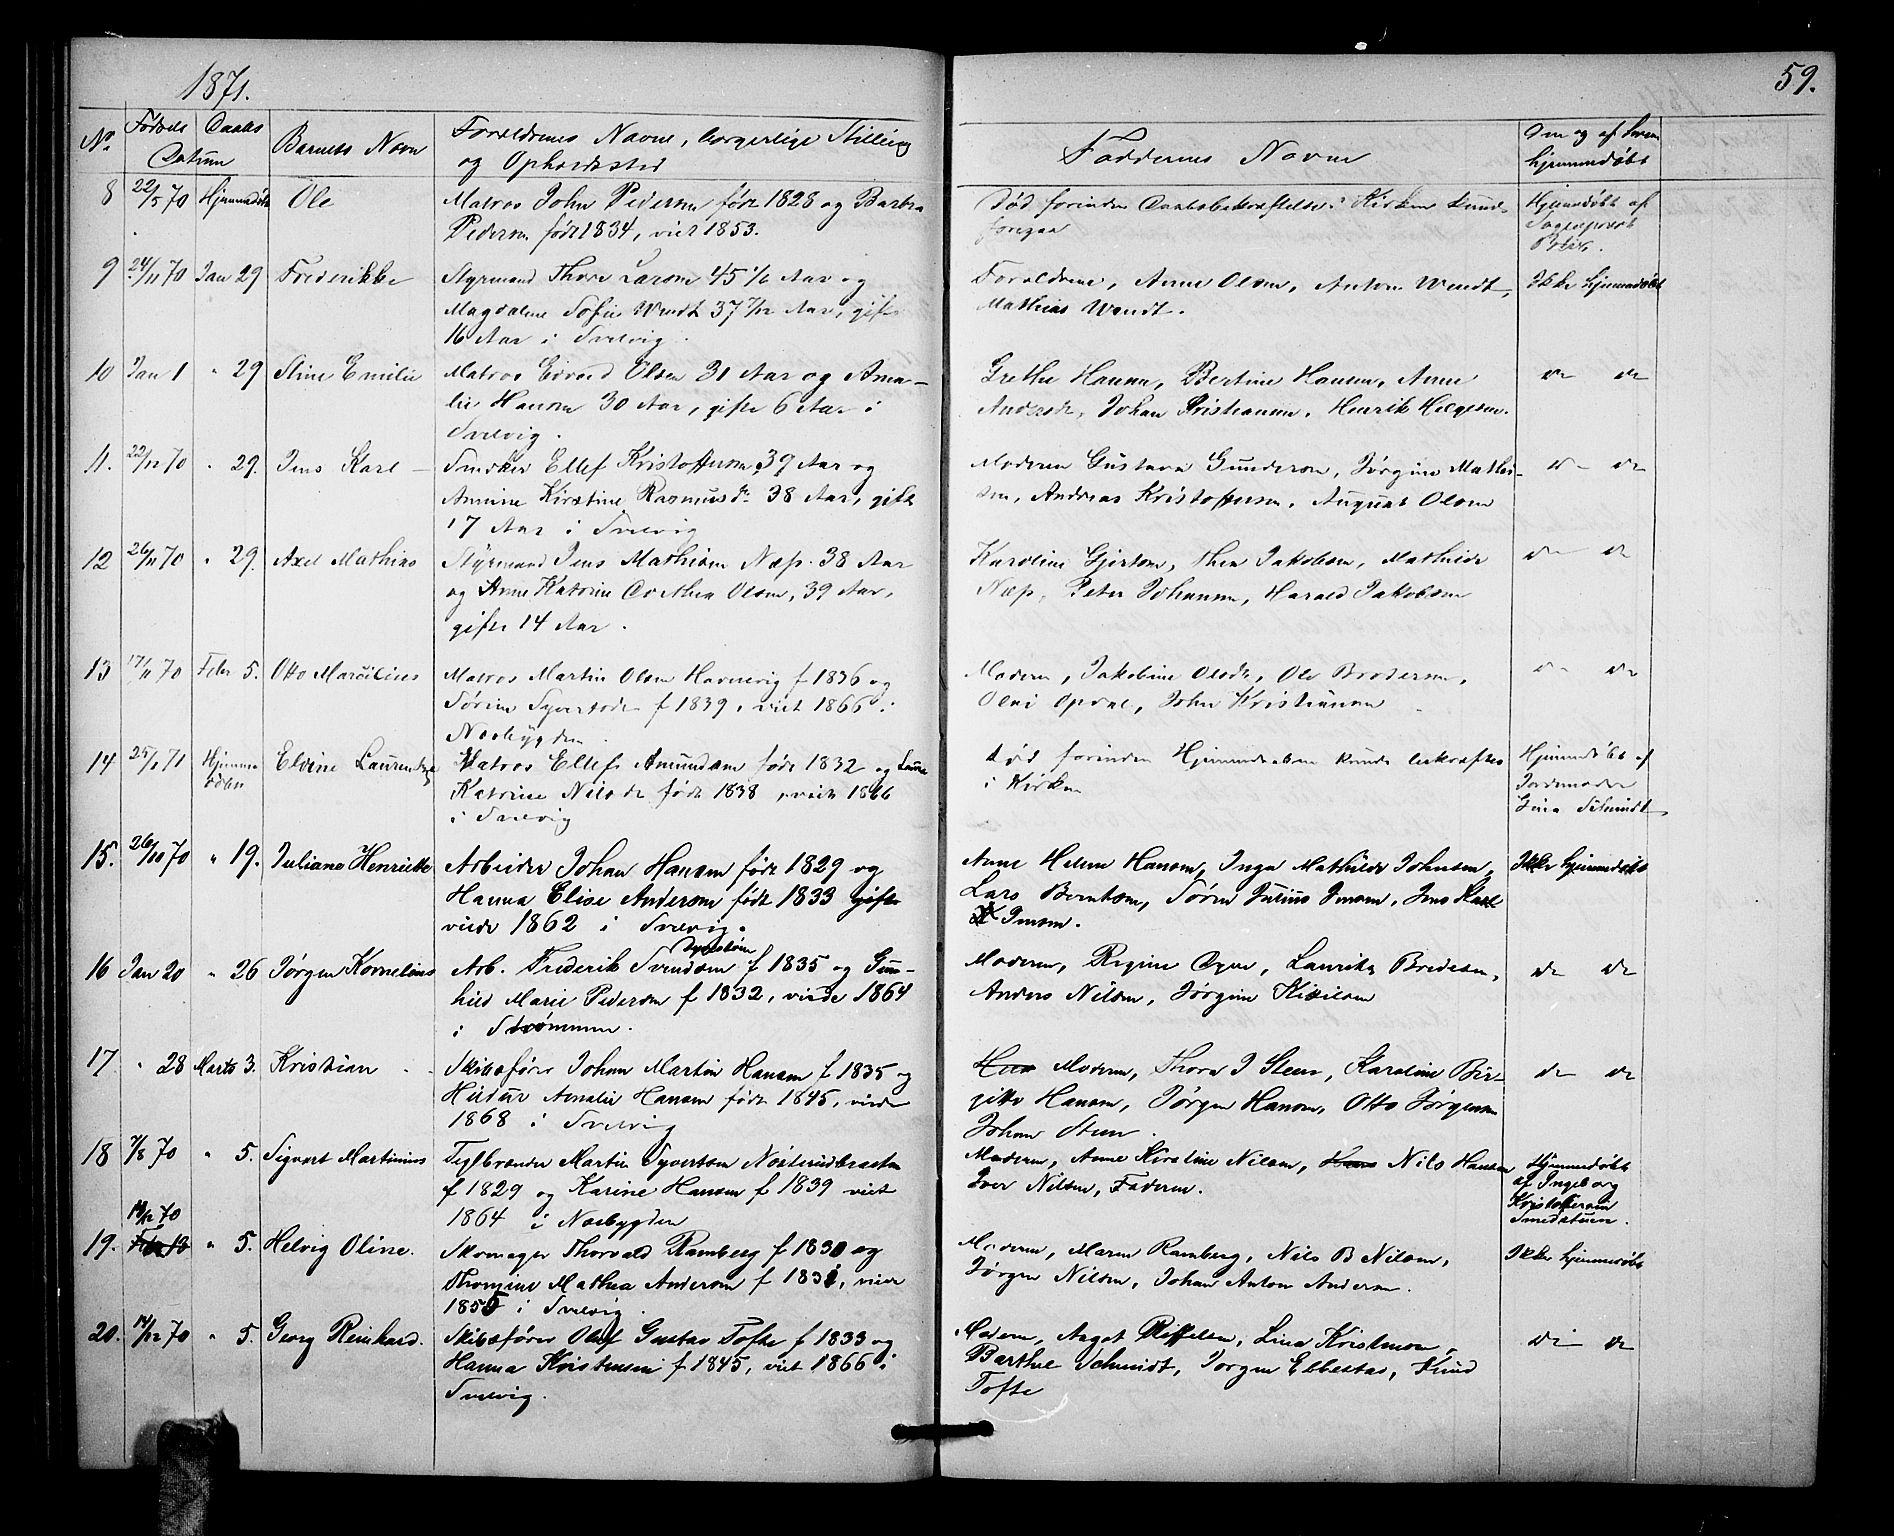 1871.
59.
No. Fødsels Daabs Datum Barnets Navn Forældrenes Navne, borgerlige Stilling
og Opholdssted
Faddernes Navne
Om og af hvem
hjemmedøbt
8 22/5 70 Hjemmedøbt Ole Matros John Pedersen født 1828 og Barbra
Pedersen født 1834, viet 1853.
Død forinden Daabsbekræftelse i Kirken kunde
foregaa
Hjemmedøbt af
9 24/11 70 Jan 29 Frederikke Styrmand Thore Larsen 45 4/6 Aar og
Magdalene Sofie Wendt 37 7/12 Aar, gifte
16 Aar i Svelvig.
Forældrene, Anne Olsen, Anton Wendt,
Mathias Wendt.
Ikke hjemmedøbt
10 Jan 1 " 29 Stine Emilie Matros Edvard Olsen 31 Aar og Ama-
lie Hansen 30 Aar, gifte 6 Aar i
Svelvig.
Grethe Hansen, Bertine Hansen, Anne
Andersdr, Johan Kristiansen, Henrik Helgesen.
do do
11. 22/12 70 " 29. Jens Karl Snedker Ellef Kristoffersen 39 Aar og
Annine Kirstine Rasmusdr. 38 Aar, gifte
17 Aar i Svelvig
Moderen Gustava Gundersen, Jørgine Mathi-
sen, Andreas Kristoffersen, August Olsen
do do
12 26/11 70 " 29. Axel Mathias Styrmand Jens Mathisen Næp. 38 Aar
og Anne Katrine Dorthea Olsen, 39 Aar,
gifte 14 Aar.
Karoline Gjertsen, Thea Jakobsen, Mathilde
Næp, Peter Johansen, Harald Jakobsen
do do
13 17/11 70 Febr 5. Otto Marcilius Matros Martin Olsen Havnevig f 1836 og
Sørine Syvertsdr f 1839, viet 1866 i
Nesbygden.
Moderen, Jakobine Olsdr, Ole Brodersen,
Olai Opdal, John Kristiansen
do do
14 25/1 71 Hjemme
døbt Elvine Laurentze Matros Ellef Amundsen født 1832 og Laura
Katrine Nilsdr født 1838, viet 1866
i Svelvig
død forinden Hjemmedaaben kunde bekræftes
i Kirken
Hjemmedøbt af
Jordemoder
Gina Schmidt
15. 26/10 70 " 19. Juliane Henriette Arbeider Johan Hansen født 1829 og
Hanna Elise Andersen født 1833 gift
viede 1862 i Svelvig.
Anne Helene Hansen, Inga Mathilde Johnsen,
Lars Berntsen, Søren Julius Jensen, Jens Karl
Jensen.
Ikke hjemmedøbt
16 Jan 20 " 26 Jørgen Kornelius Arb. Frederik Svendsen f 1835 og Gun-
hild Marie Pedersen f 1832, viede 1864
i Strømmen.
Moderen, Regine Dyve, Laurika Bredesen,
Anders Nilsen, Jørgine
do do
17. " 28 Marts 3. Kristian Skibsfører Johan Martin Hansen f 1835 og
Hildur Amalie Hansen født 1845, viede
1868 i Svelvig
Moderen, Thora J Steen, Karoline Bir-
gitte Hansen, Jørgen Hansen, Otto Jørgensen
Johan Steen.
do do
18 7/8 70 " 5. Sigvart Martinius Teglbrænder Martin Syvertsen Nøsterudbraaten
f 1829 og Karine Hansen f 1839 viet
1864 i Nesbygden
Moderen, Anne Kirstine Nilsen, Hans Nils Hansen
Iver Nilsen, Faderen.
Hjemmedøbt
af Ingeborg
Kristoffersen
Smedstuen.
19/12 70
19. Febr 13 " 5. Helvig Oline. Skomager Thorvald Ramberg f 1830 og
Thomine Mathea Andersen f 1831, viede
1855 i Svelvig.
Moderen, Maren Ramberg, Nils B Nilsen,
Jørgen Nilsen, Johan Anton Andersen.
Ikke hjemmedøbt
20. 14/12 70 " 5. Georg Reinhard. Skibsfører Oluf Gustav Tofte f 1833 og
Hanna Kristensen f 1845, viet 1866 i
Svelvig.
Moderen, Aagot Lina Kristensen,
Barthe Schmidt, Jørgen Ebbestad, Knud
Tofte
do do